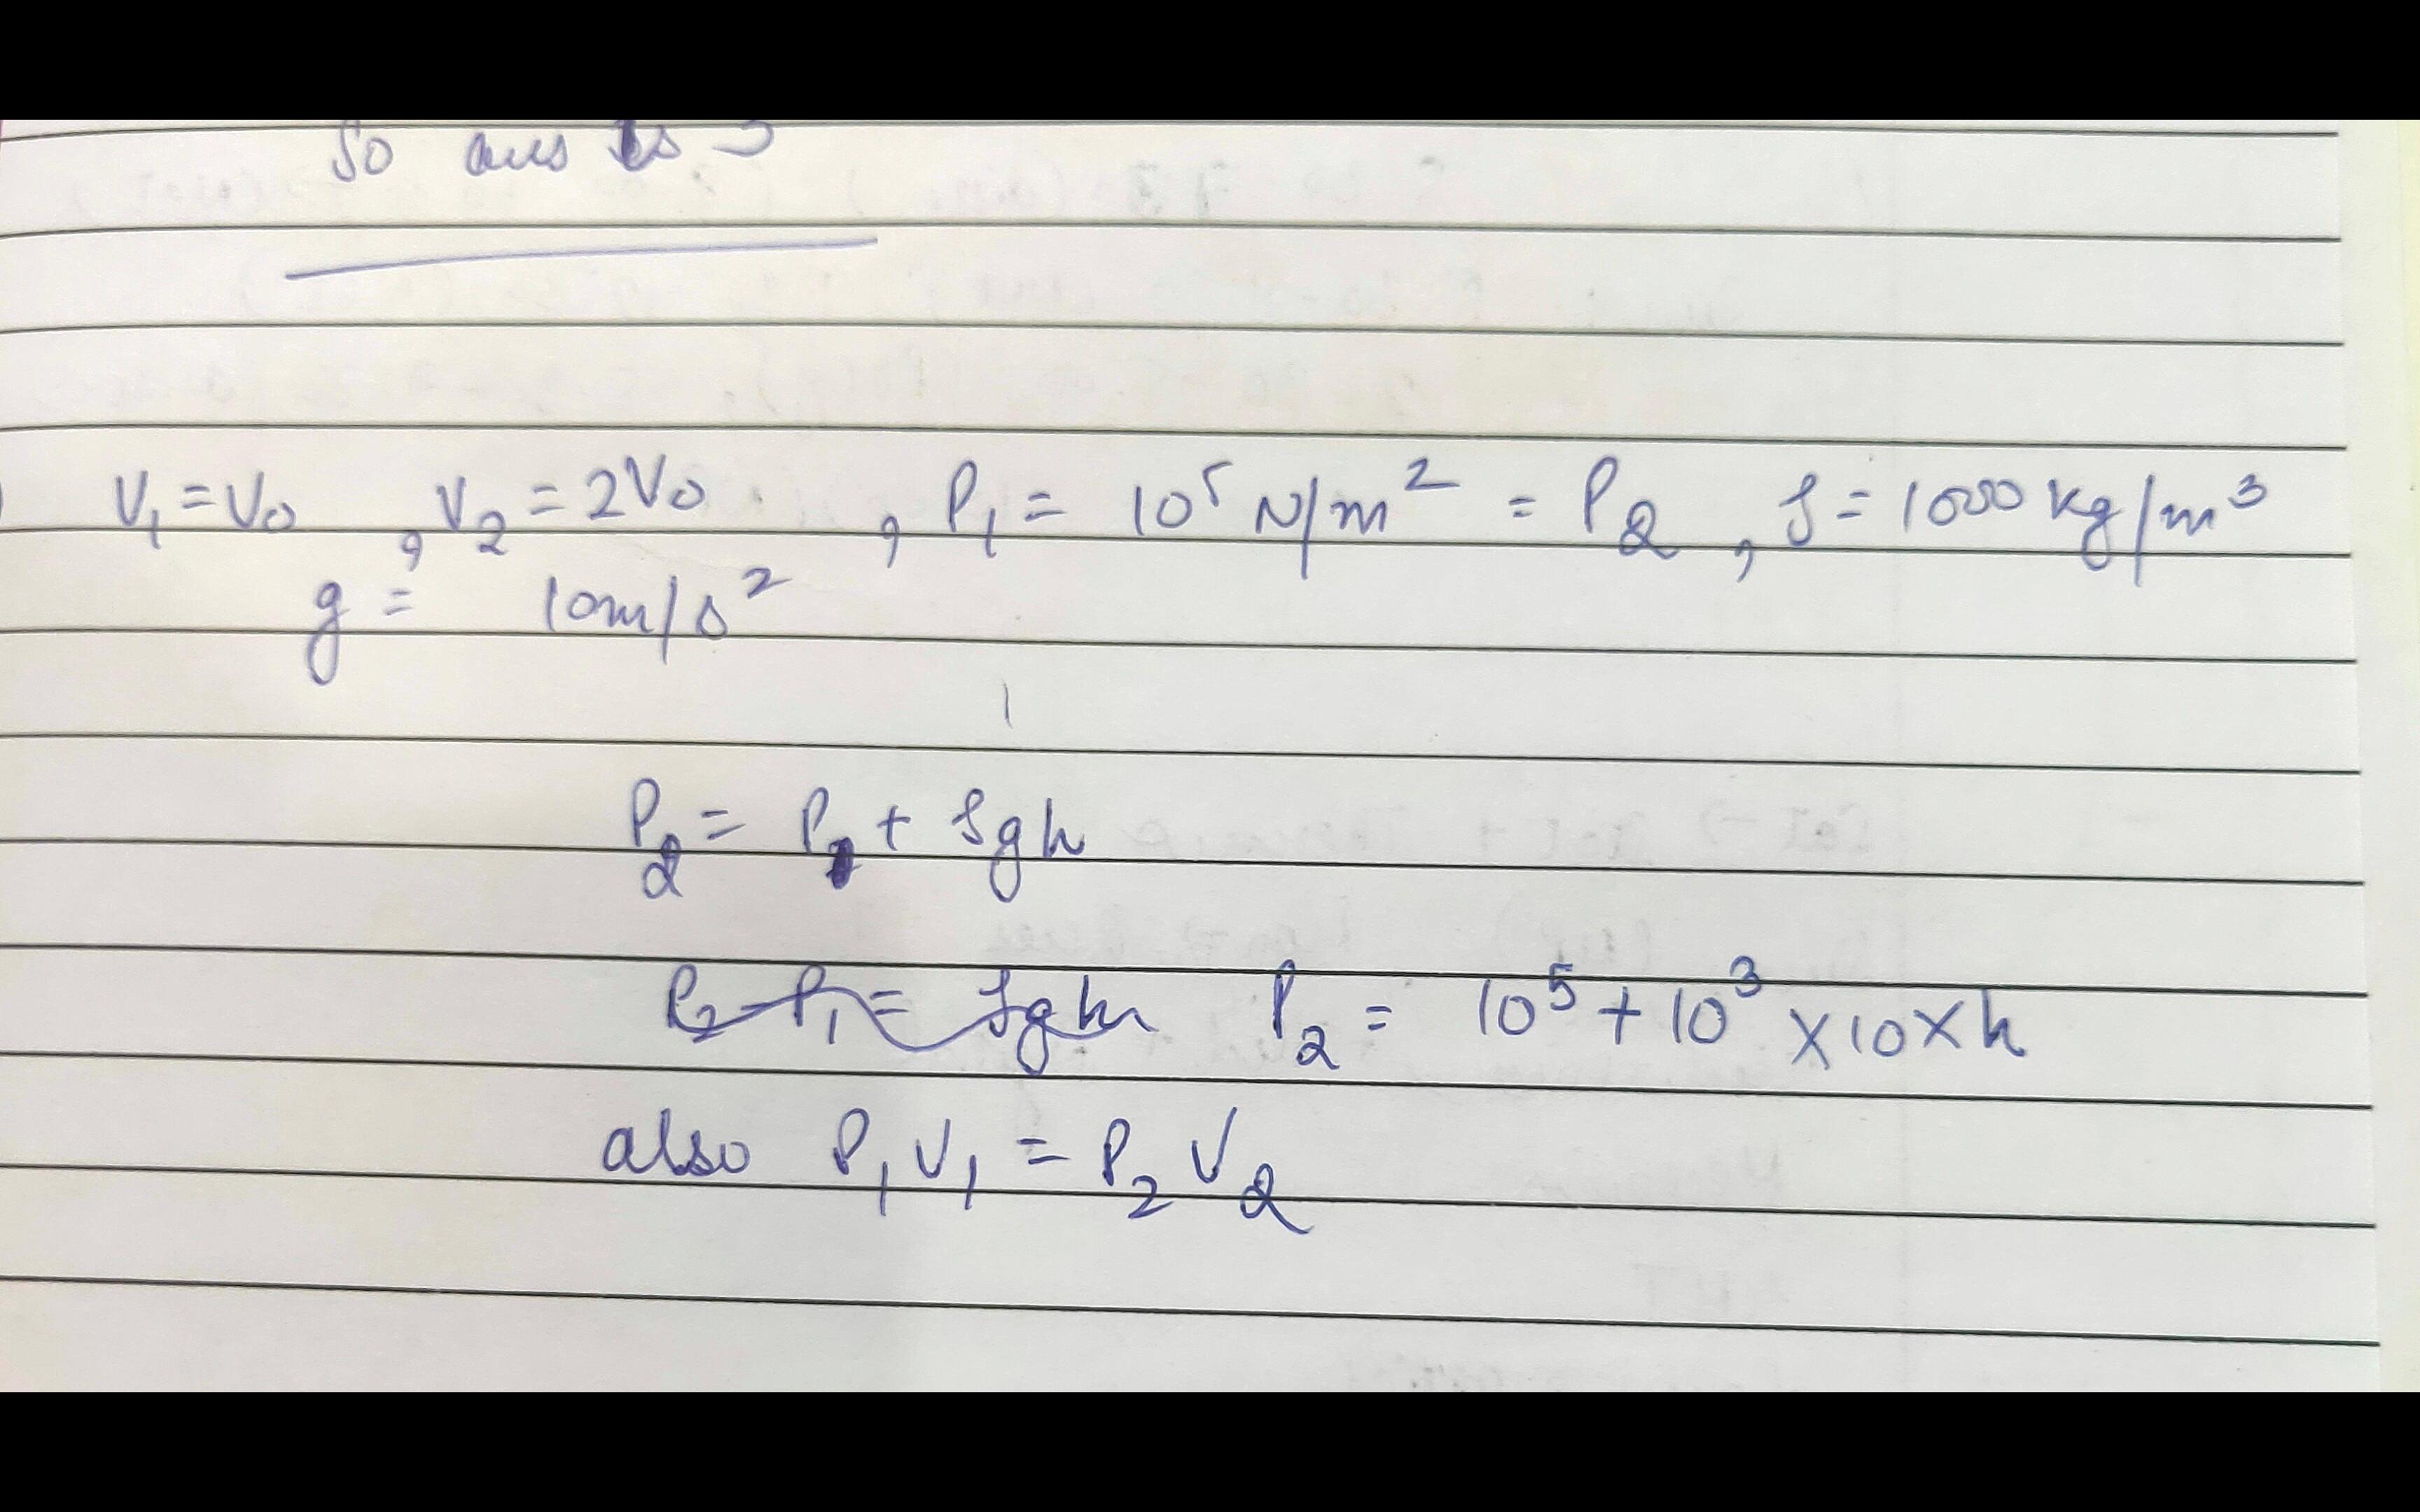 So ans is
V₁ = V₀ , V₂ = 2V₀ , P₁ = 10⁵ N/m² = P₂ , ρ = 1000 kg/m³
g = 10m/s²
P₂ = P₁ + ρgh
P₂ - P₁ = ρgh P₂ = 10⁵ + 10³ × 10 × h
also P₁V₁ = P₂V₂